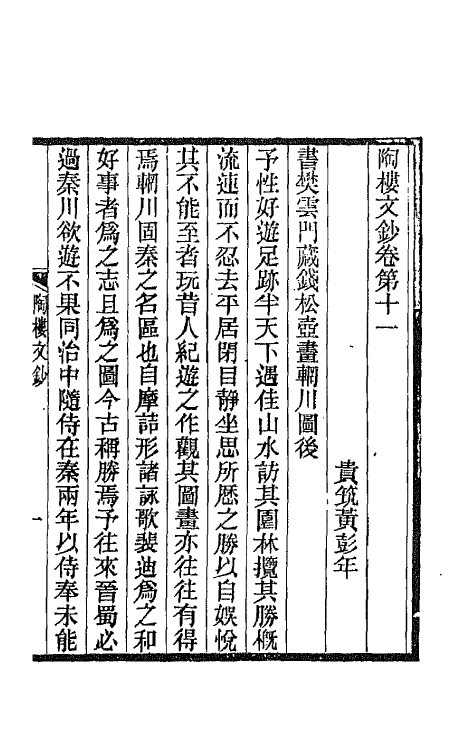 陶樓文鈔卷第十一
貴筑黃彭年
書樊雲門藏錢松壺畫輞川圖後
予性好遊足跡半天下遇佳山水訪其園林攬其勝概
流連而不忍去平居閉目靜坐思所歷之勝以自娛悅
其不能至者玩昔人紀遊之作觀其圖畫亦往往有得
焉輞川固秦之名區也自摩詰形諸詠歌裴迪爲之和
好事者爲之志且爲之圖今古稱勝焉予往來晉蜀必
過秦川欲遊不果同治中隨侍在秦兩年以侍奉未能
陶樓文鈔
一